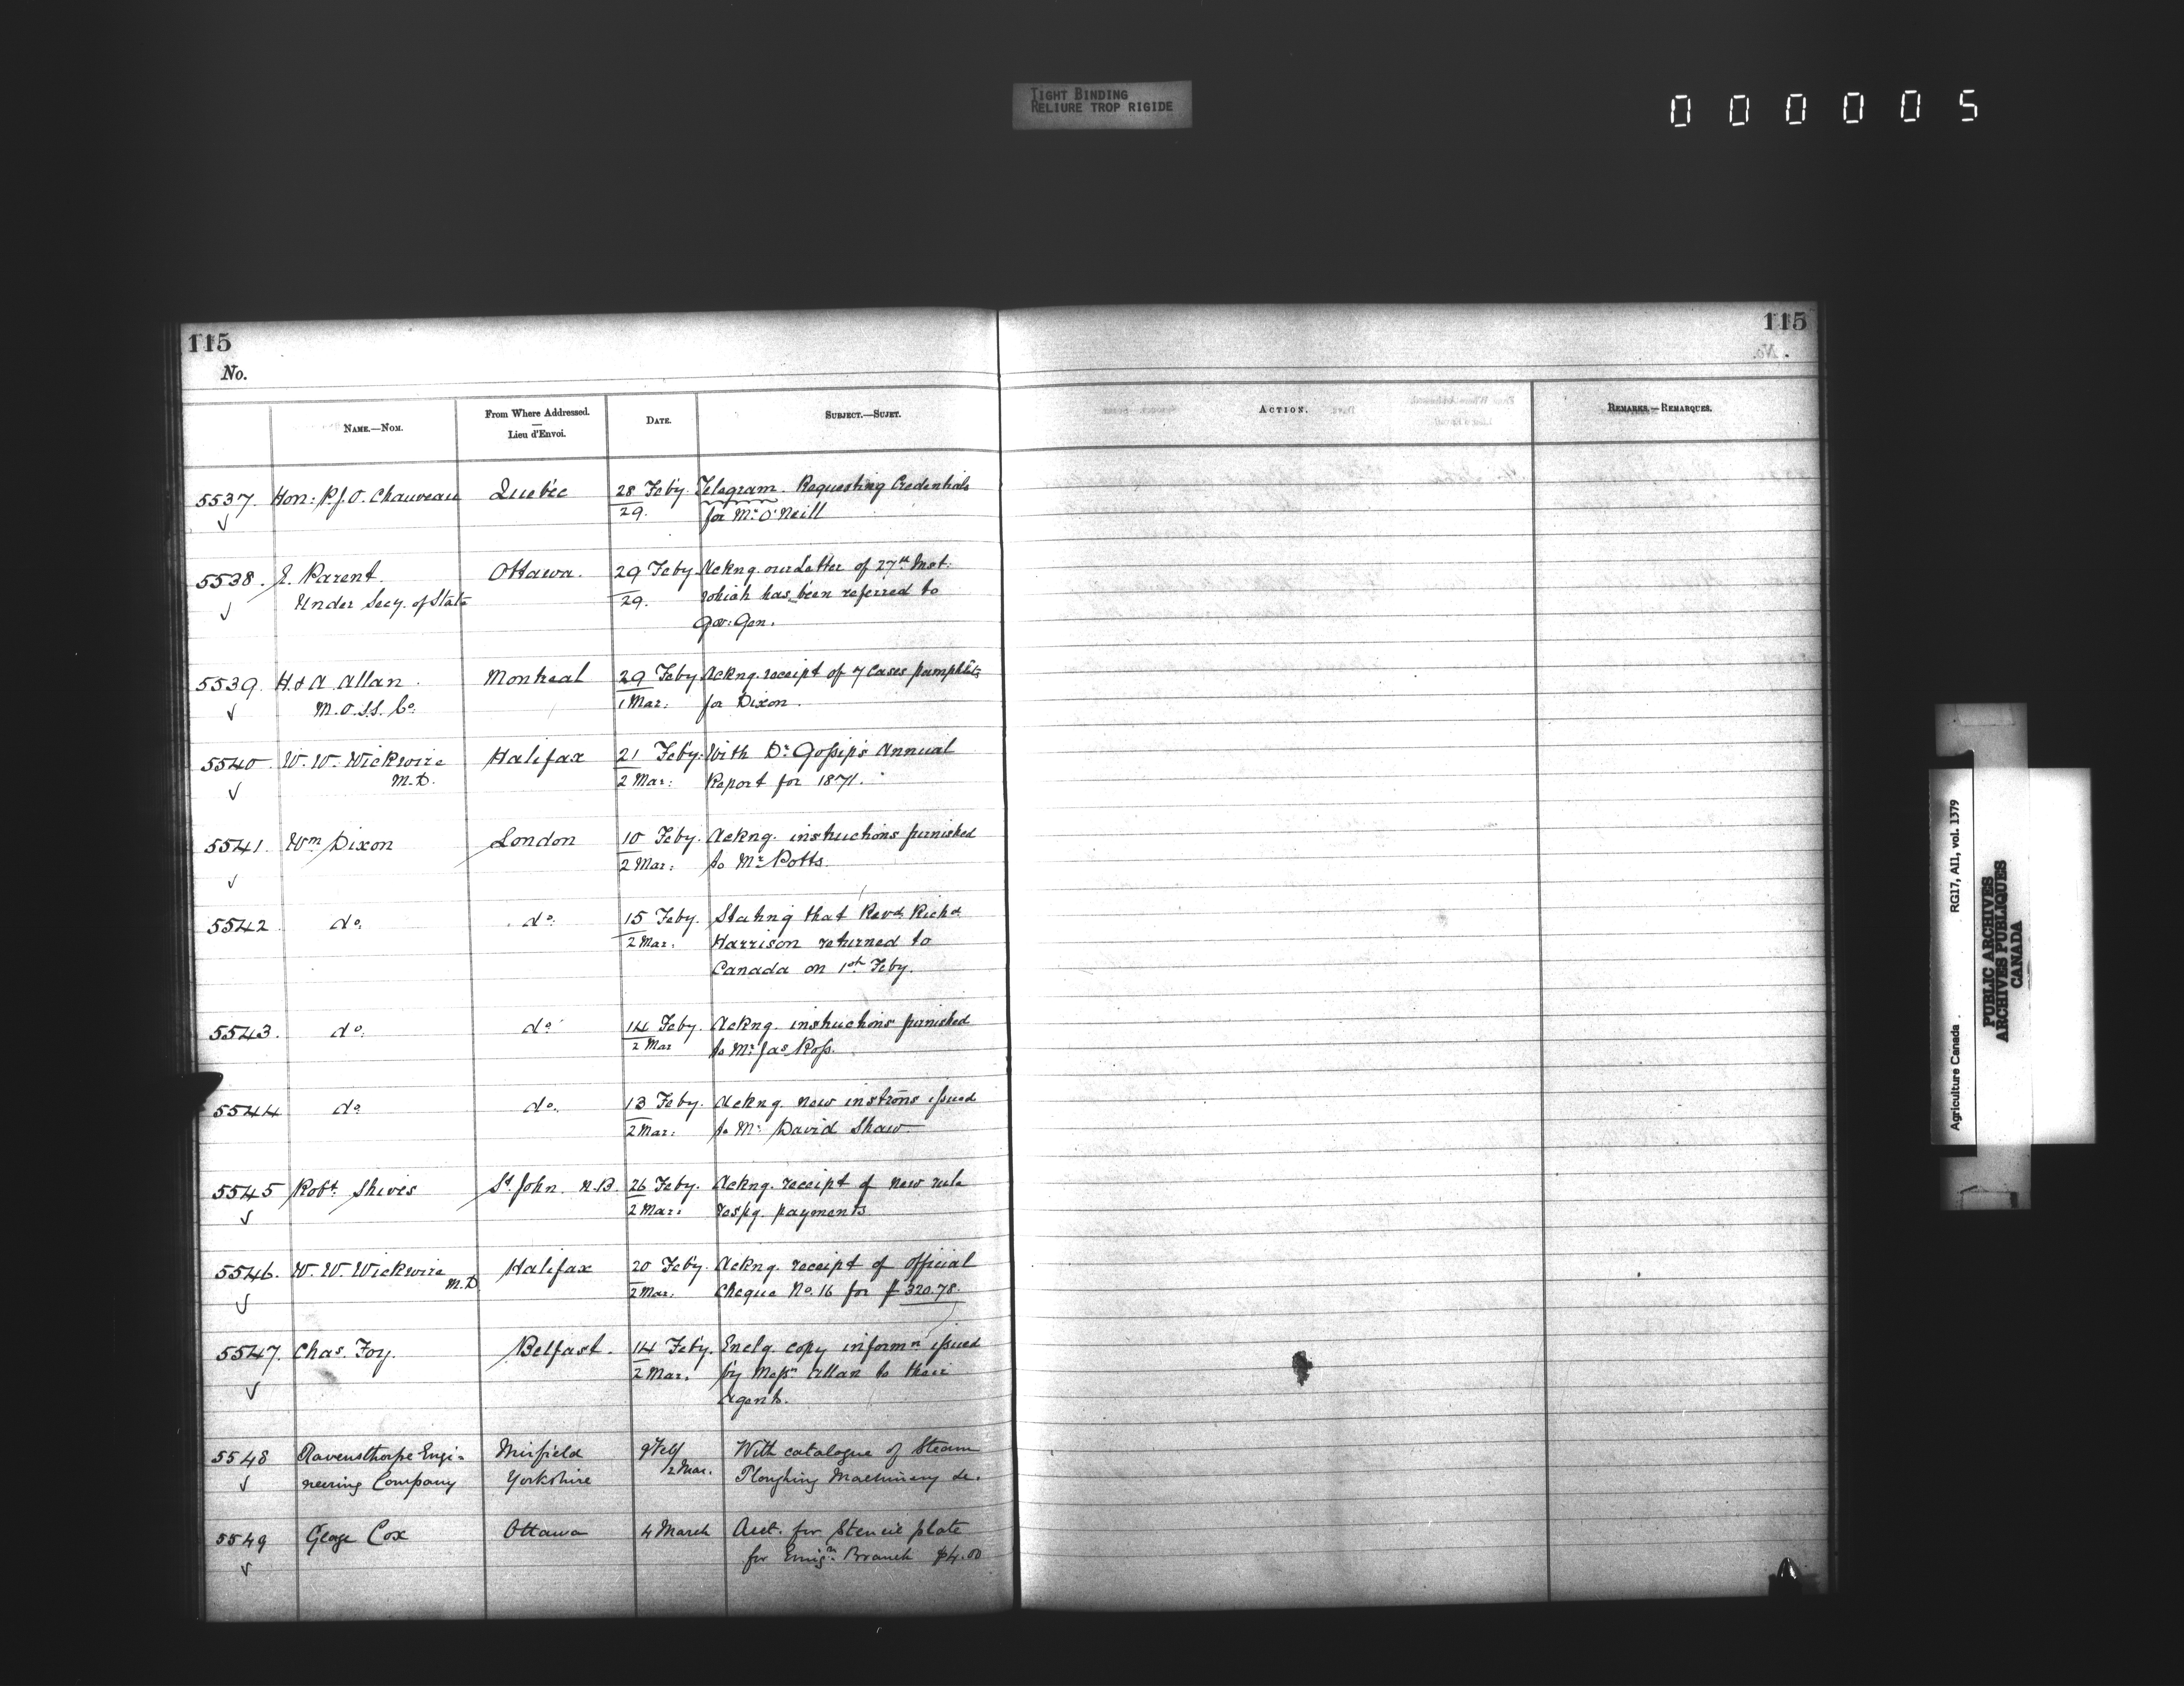 TIGHT BINDING
RELIURE TROP RIGIDE
0 0 0 0 0 5
115
No.
NAME.—NOM.
From Where Addressed.
—
Lieu d'Envoi.
DATE.
SUBJECT.—SUJET.
5537. Hon: P.J.O. Chauveau Quebec 28 Feby. Telegram. Requesting Credentials
29. for Mr. O'Neill
5538. E. Parent Ottawa. 29 Feby. Ackng. our Letter of 27th Inst.
Under Secy. of State 29. which has been referred to
Gov: Gen.
5539. H. & A. Allan. Montreal 29 Feby Ackng. receipt of 7 Cases pamphlets
M.O.S.S. Co. 1 Mar: for Dixon.
5540. W. W. Wickwire Halifax 21 Feby. With Dr. Gossip's Annual
M.D. 2 Mar: Report for 1871.
5541. Wm Dixon London 10 Feby. Ackng. instructions furnished
2 Mar: to Mr. Potts.
5542 do. do. 15 Feby. Stating that Revd. Richd.
2 Mar: Harrison returned to
Canada on 1st Feby.
5543. do. do. 14 Feby. Ackng. instructions furnished
2 Mar to Mr. Jas Ross.
5544 do. do. 13 Feby. Ackng. new instrons issued
2 Mar: to Mr. David Shaw.
5545 Robt. Shives St. John N.B. 26 Feby. Ackng. receipt of new rule
2 Mar: respg. payments.
5546. W. W. Wickwire Halifax 20 Feby. Ackng. receipt of official
M.D. 2 Mar: Cheque No. 16 for $ 320.78.
5547. Chas. Foy. Belfast. 14 Feby. Enclg. copy informn issued
2 Mar. by Messrs Allan to their
Agents.
5548 Ravensthorpe Engi- Mirfield 9 Feby With catalogue of Steam
neering Company Yorkshire 2 Mar. Ploughing Machinery &c.
5549 George Cox Ottawa 4 March Acct. for Stencil plate
for Emign. Branch $4.00
115
No.
ACTION.
REMARKS.—REMARQUES.
Agriculture Canada RG17, AI1, vol. 1379
PUBLIC ARCHIVES
ARCHIVES PUBLIQUES
CANADA